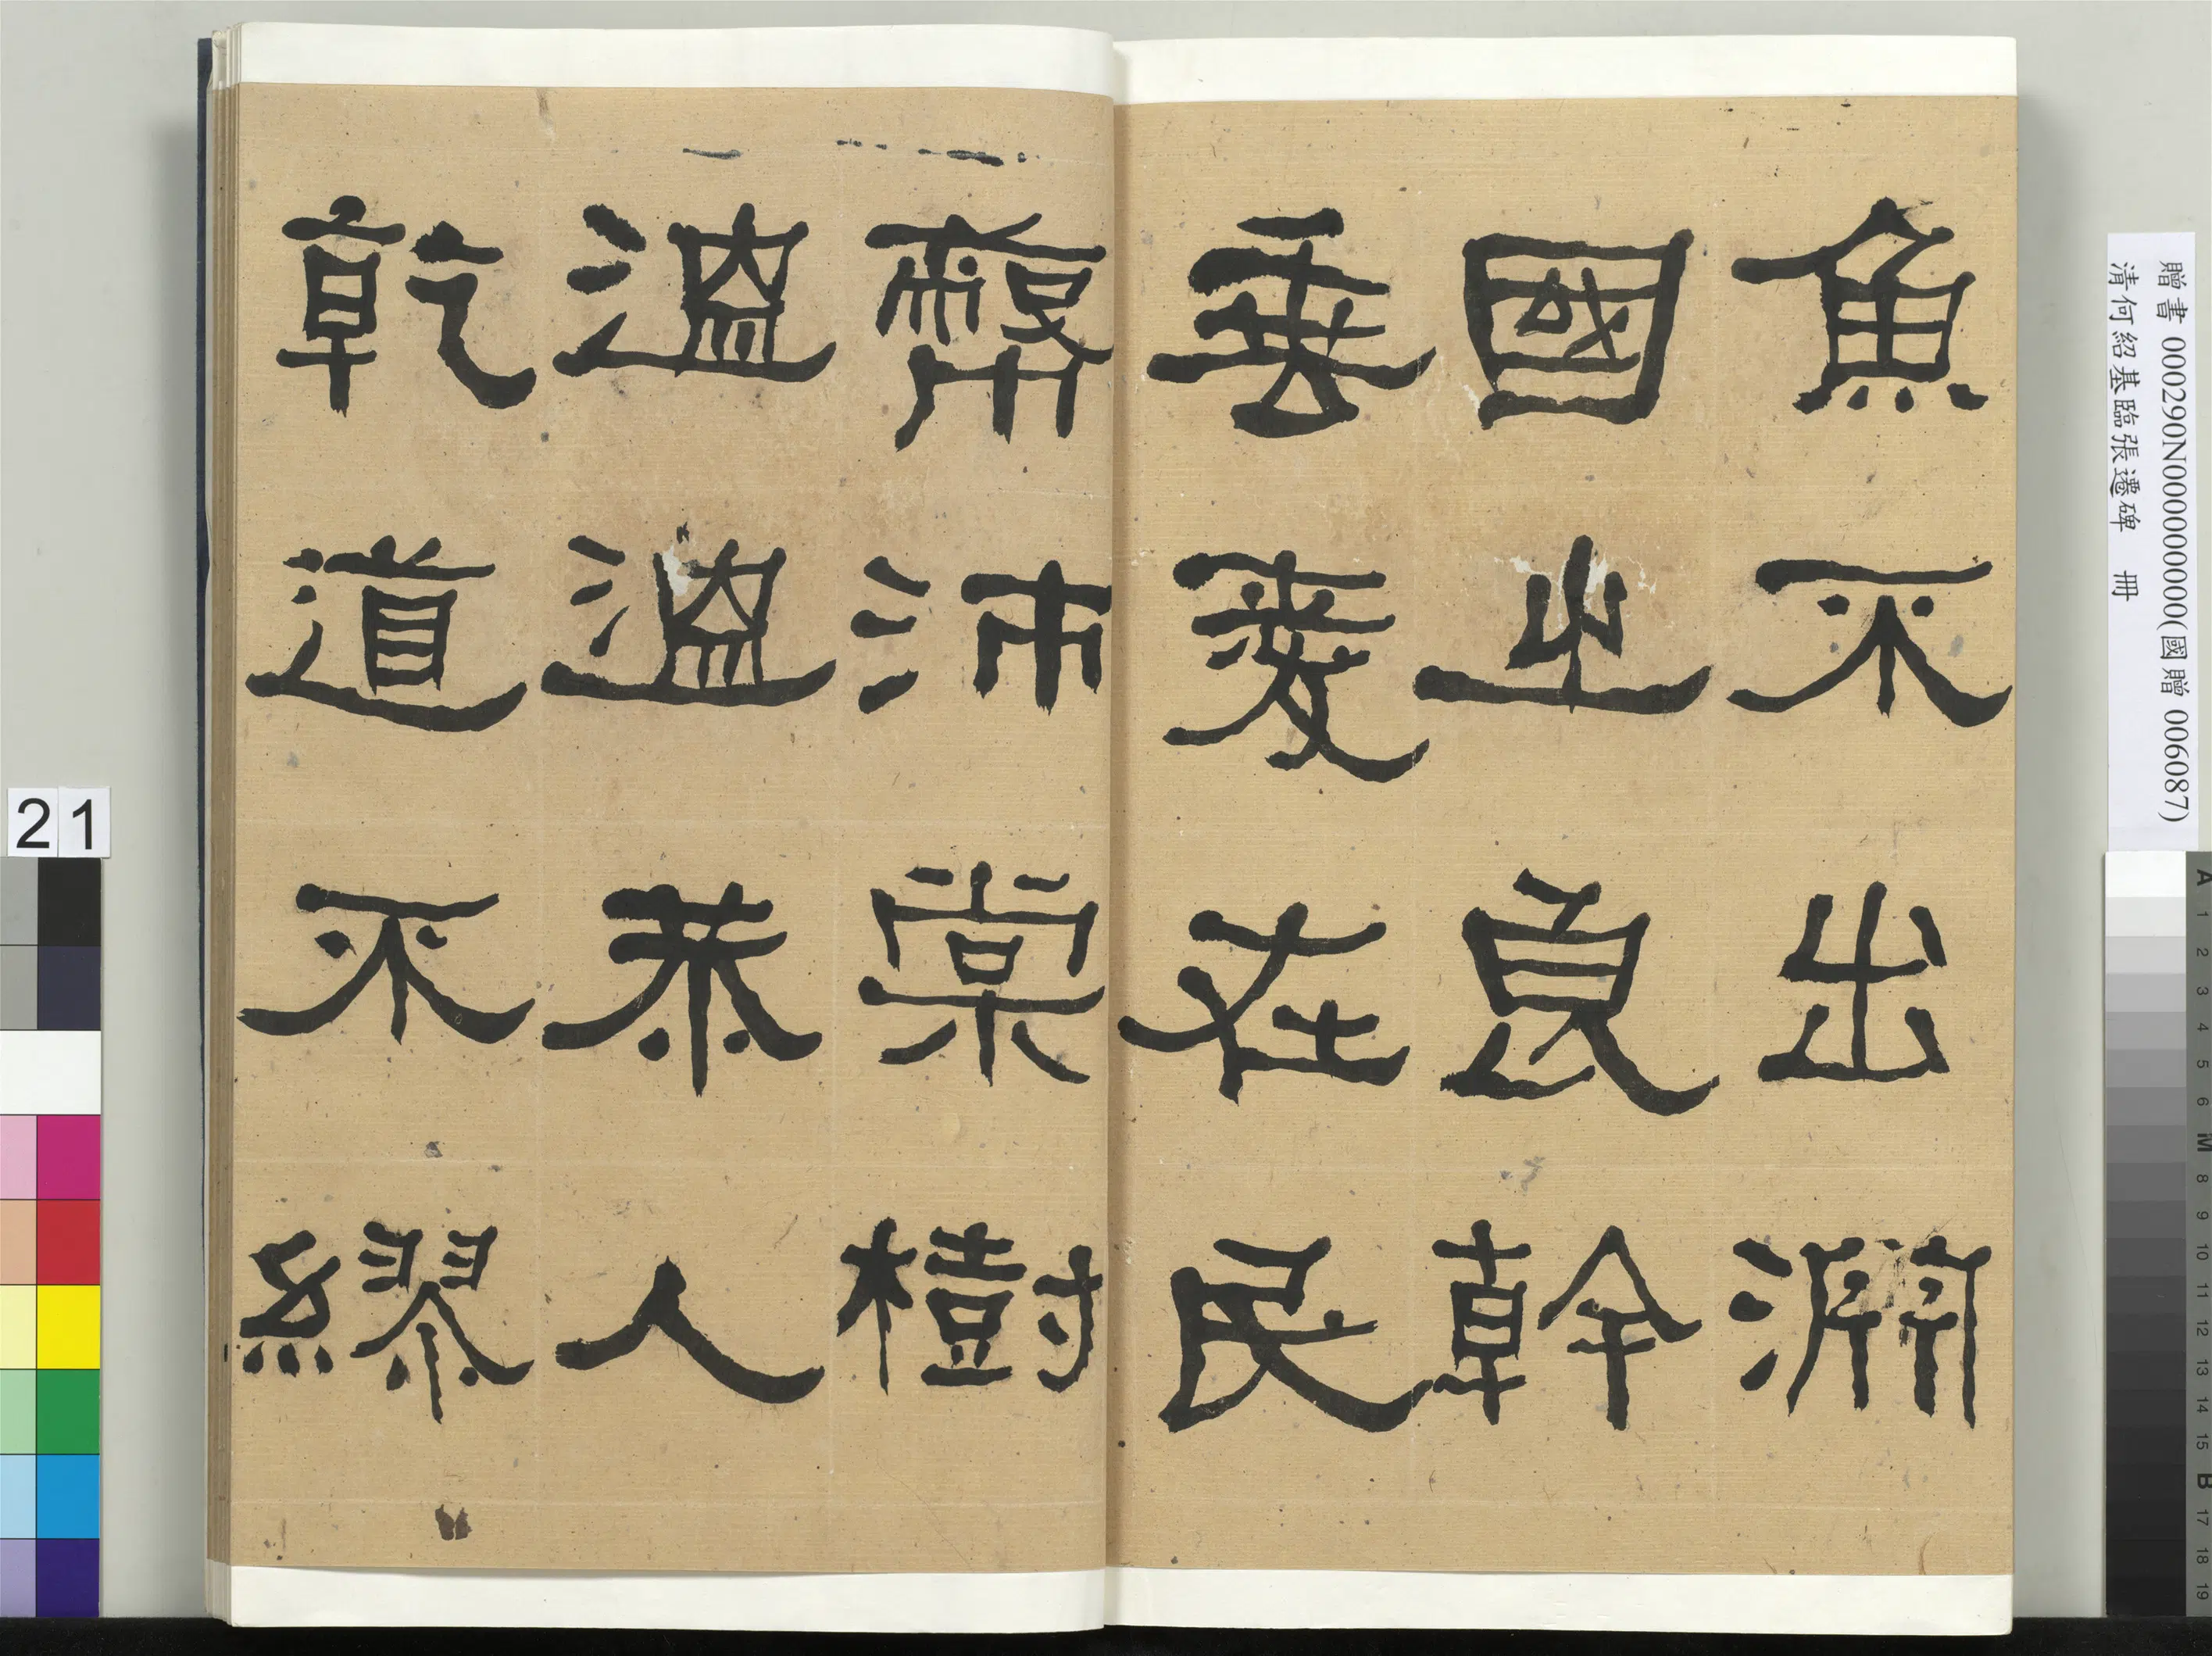 魚不出淵
國之良幹
垂愛在民
蔽沛棠樹
溫溫恭人
乾道不繆
贈書 000290N000000000(國贈 006087)
清何紹基臨張遷碑 冊
21
A 1 2 3 4 5 6 M 8 9 10 11 12 13 14 15 B 17 18 19